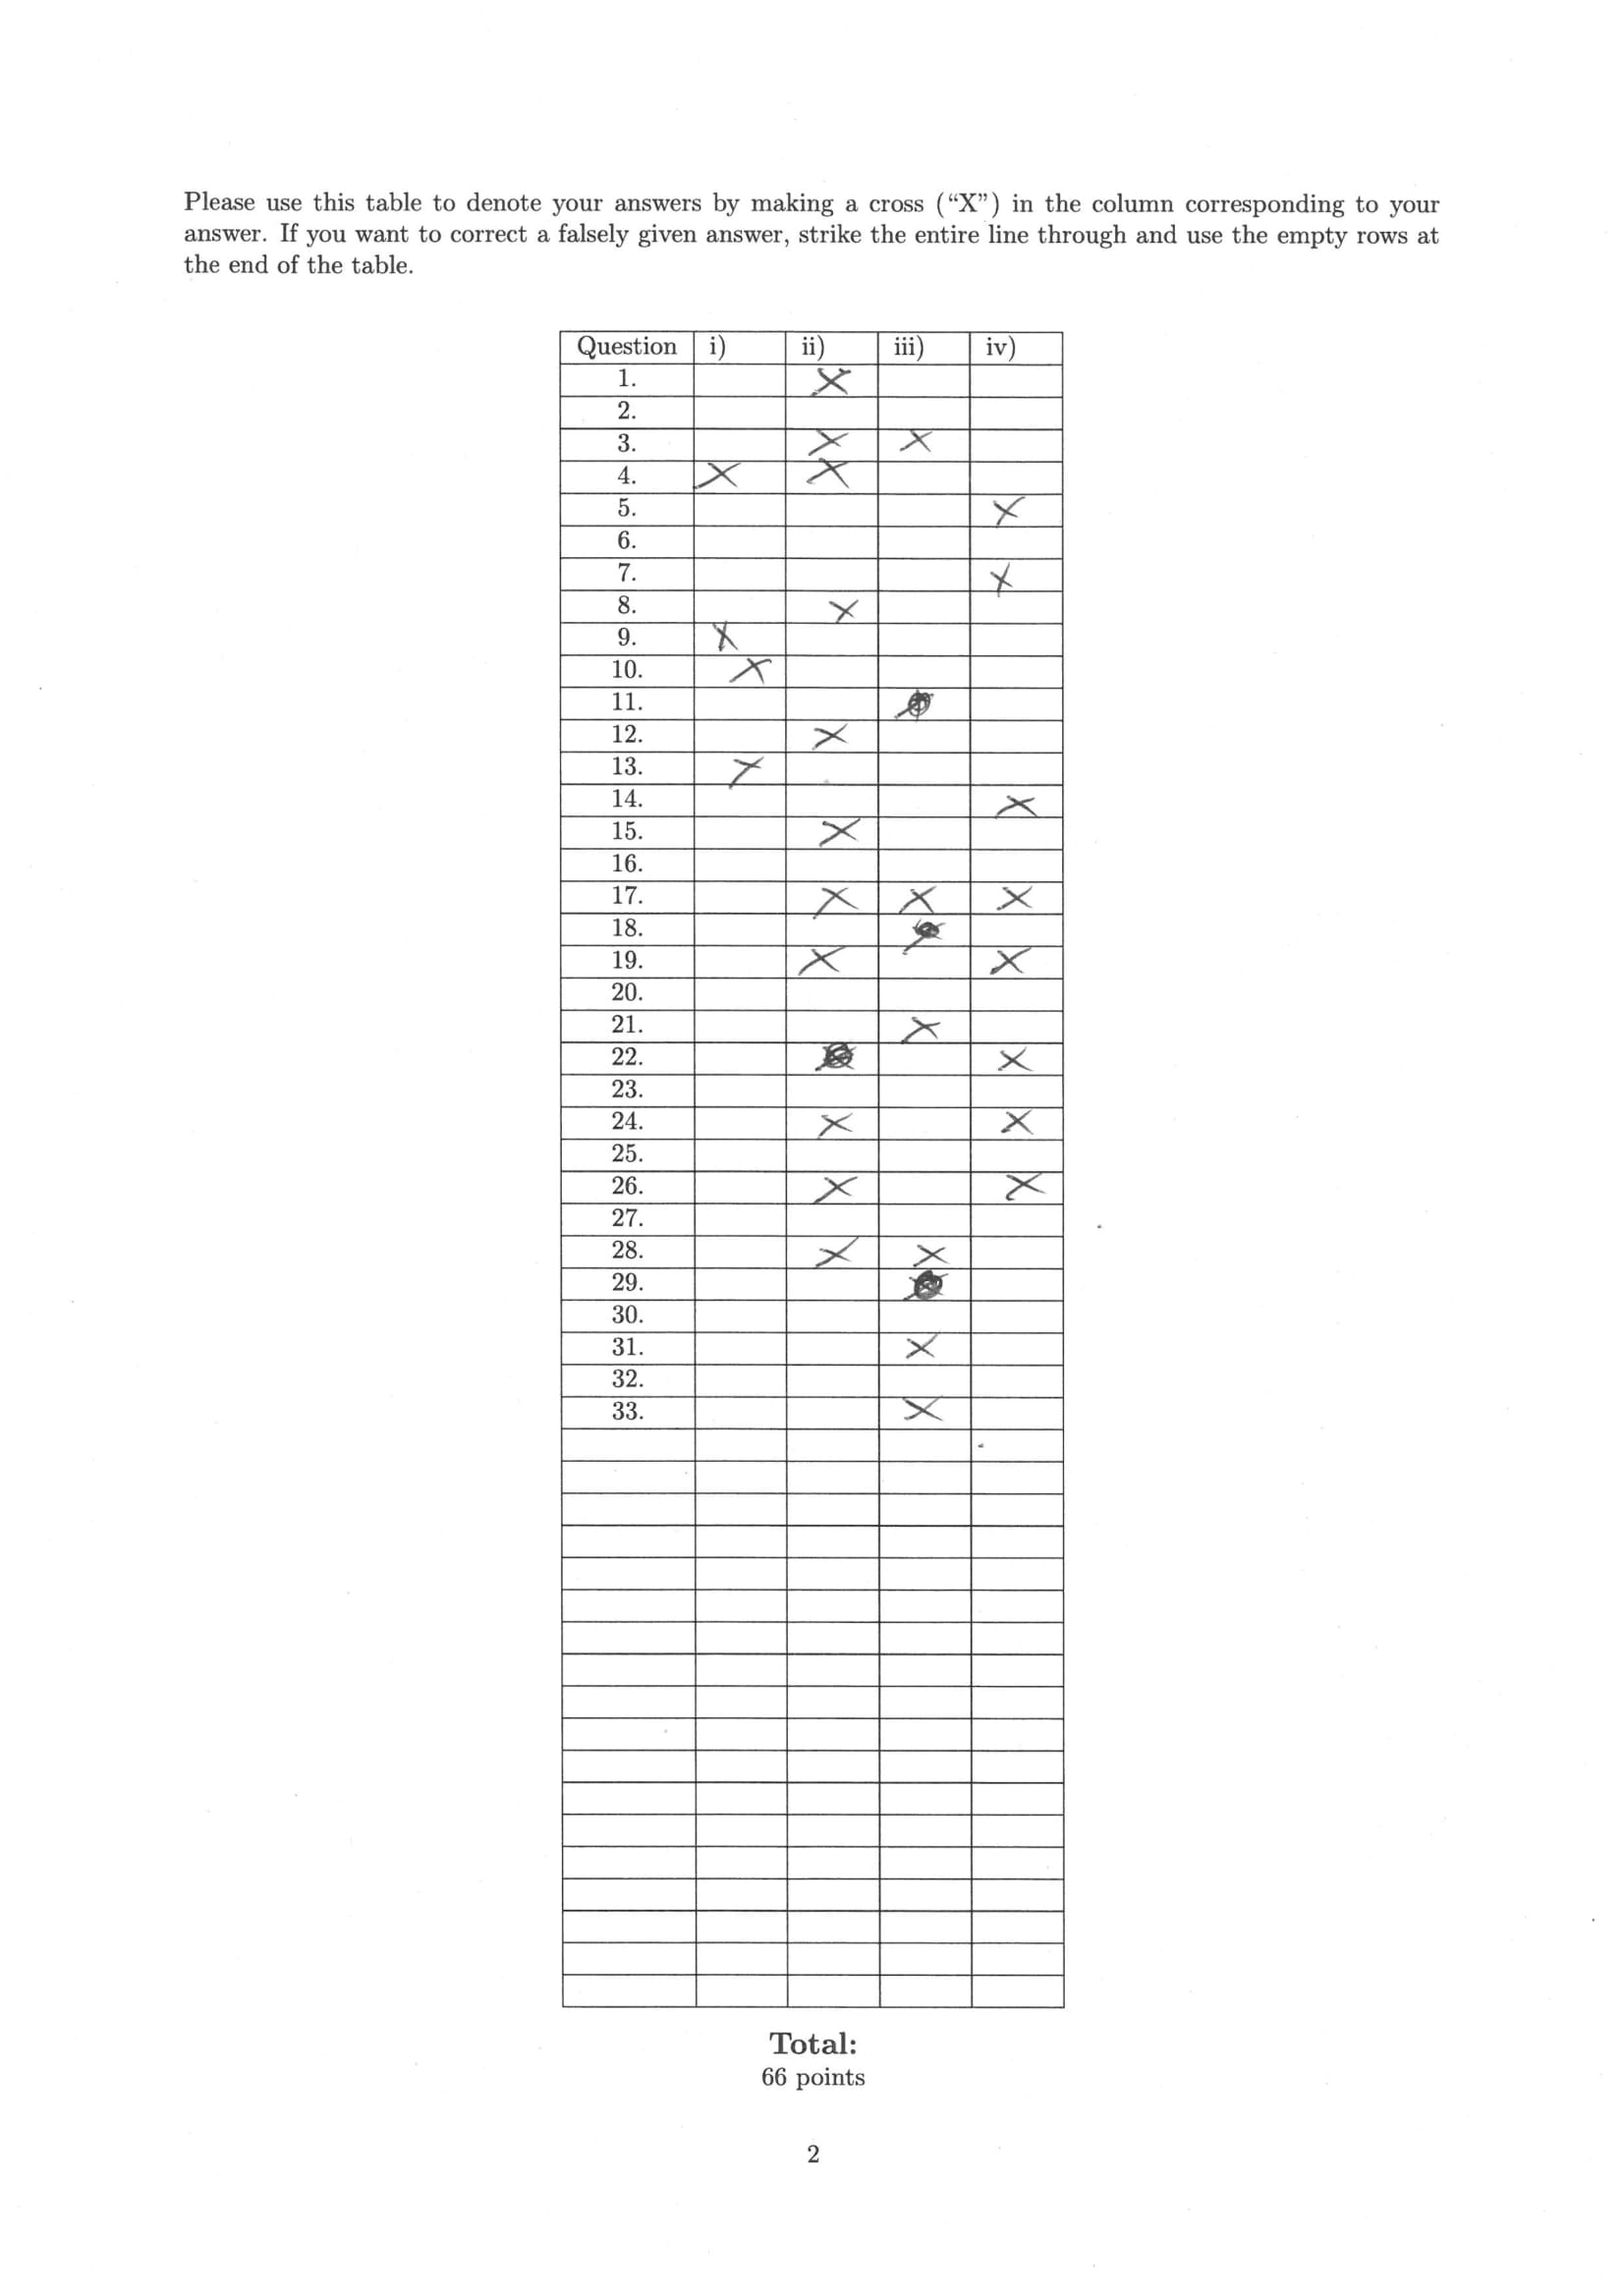 Please use this table to denote your answers by making a cross (“X”) in the column corresponding to your
answer. If you want to correct a falsely given answer, strike the entire line through and use the empty rows at
the end of the table.
Question i) ii) iii) iv)
1. X
2.
3. X X
4. X X
5. X
6.
7. X
8. X
9. X
10. X
11.
12. X
13. X
14. X
15. X
16.
17. X X X
18.
19. X X
20.
21. X
22. X
23.
24. X X
25.
26. X X
27.
28. X X
29.
30.
31. X
32.
33. X
Total:
66 points
2